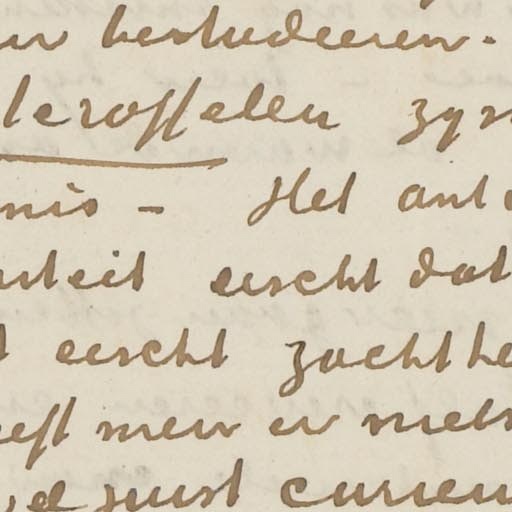 en bestudeeren.
aerosselen zyn
nis - Het ant
rteit eischt dat
t eischt zachthe
eeft men er niets
juist curieu